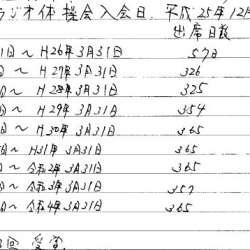 ラジオ体操会入会日、平成25年12月
出席日数
1日〜H26年3月31日 57日
日〜H27年3月31日 326
日〜H28年3月31日 325
日〜H29年3月31日 354
日〜H30年3月31日 365
日〜H31年3月31日 365
日〜令和2年3月31日 365
日〜令和3年3月31日 357
日〜令和4年3月31日 365
回 受賞